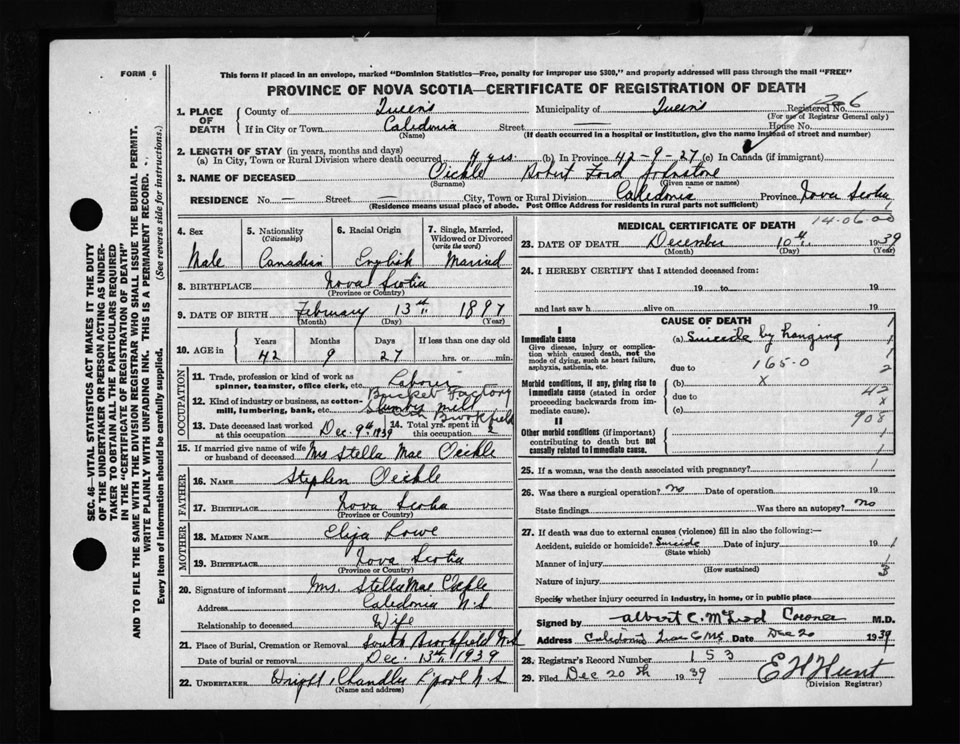 FORM 6
This form if placed in an envelope, marked "Dominion Statistics—Free, penalty for improper use $300," and properly addressed will pass through the mail "FREE"
PROVINCE OF NOVA SCOTIA—CERTIFICATE OF REGISTRATION OF DEATH
1. PLACE OF DEATH County of Queens Municipality of Queens Registered No. 206
(For use of Registrar General only)
If in City or Town Caledonia Street — House No.
(Name) (If death occurred in a hospital or institution, give the name instead of street and number)
2. LENGTH OF STAY (in years, months and days)
(a) In City, Town or Rural Division where death occurred 4 yrs. (b) In Province 42-9-27 (c) In Canada (if immigrant)
3. NAME OF DECEASED Oickle Robert Ford Johnstone
(Surname) (Given name or names)
RESIDENCE No. — Street — City, Town or Rural Division Caledonia Province Nova Scotia
(Residence means usual place of abode. Post Office Address for residents in rural parts not sufficient)
4. Sex 5. Nationality (Citizenship) 6. Racial Origin 7. Single, Married, Widowed or Divorced (write the word)
Male Canadian English Married
8. BIRTHPLACE Nova Scotia
(Province or Country)
9. DATE OF BIRTH February 13th 1897
(Month) (Day) (Year)
10. AGE in Years Months Days If less than one day old
42 9 27 hrs. or min.
OCCUPATION
11. Trade, profession or kind of work as spinner, teamster, office clerk, etc. Labour
12. Kind of industry or business, as cotton-mill, lumbering, bank, etc. Bucket Factory
Mill Brookfield
13. Date deceased last worked at this occupation Dec. 9th 1939 14. Total yrs. spent in this occupation 2
15. If married give name of wife or husband of deceased Mrs Stella Mae Oickle
FATHER
16. NAME Stephen Oickle
17. BIRTHPLACE Nova Scotia
(Province or Country)
MOTHER
18. MAIDEN NAME Eliza Lowe
19. BIRTHPLACE Nova Scotia
(Province or Country)
20. Signature of informant Mrs. Stella Mae Oickle
Address Caledonia N.S
Relationship to deceased Wife
21. Place of Burial, Cremation or Removal South Brookfield N.S
Date of burial or removal Dec. 13th 1939
22. UNDERTAKER Chandler L'pool N.S
(Name and address)
MEDICAL CERTIFICATE OF DEATH
14-06-00
23. DATE OF DEATH December 10th 1939
(Month) (Day) (Year)
24. I HEREBY CERTIFY that I attended deceased from:
19 to 19
and last saw h alive on 19
CAUSE OF DEATH 1
I
Immediate cause (a) Suicide by hanging 1
Give disease, injury or complication which caused death, not the mode of dying, such as heart failure, asphyxia, asthenia, etc.
due to 165-0 2
Morbid conditions, if any, giving rise to immediate cause (stated in order proceeding backwards from immediate cause). (b) x
due to 42
x
(c) 908
II
Other morbid conditions (if important) contributing to death but not causally related to immediate cause. 1
1
25. If a woman, was the death associated with pregnancy? 1
26. Was there a surgical operation? no Date of operation 19
State findings Was there an autopsy? no
27. If death was due to external causes (violence) fill in also the following:—
Accident, suicide or homicide? Suicide Date of injury 19 1
(State which)
Manner of injury 1
(How sustained) 3
Nature of injury
Specify whether injury occurred in industry, in home, or in public place
Signed by Albert C. McLeod Coroner M.D.
Address Caledonia Date Dec 20 1939
28. Registrar's Record Number 153
29. Filed Dec 20th 1939 E H Hunt
(Division Registrar)
SEC. 46—VITAL STATISTICS ACT MAKES IT THE DUTY
OF THE UNDERTAKER OR PERSON ACTING AS UNDER-
TAKER TO OBTAIN ALL THE PARTICULARS REQUIRED
IN THE "CERTIFICATE OF REGISTRATION OF DEATH"
AND TO FILE THE SAME WITH THE DIVISION REGISTRAR WHO SHALL ISSUE THE BURIAL PERMIT.
WRITE PLAINLY WITH UNFADING INK. THIS IS A PERMANENT RECORD.
Every item of information should be carefully supplied. (See reverse side for instructions.)